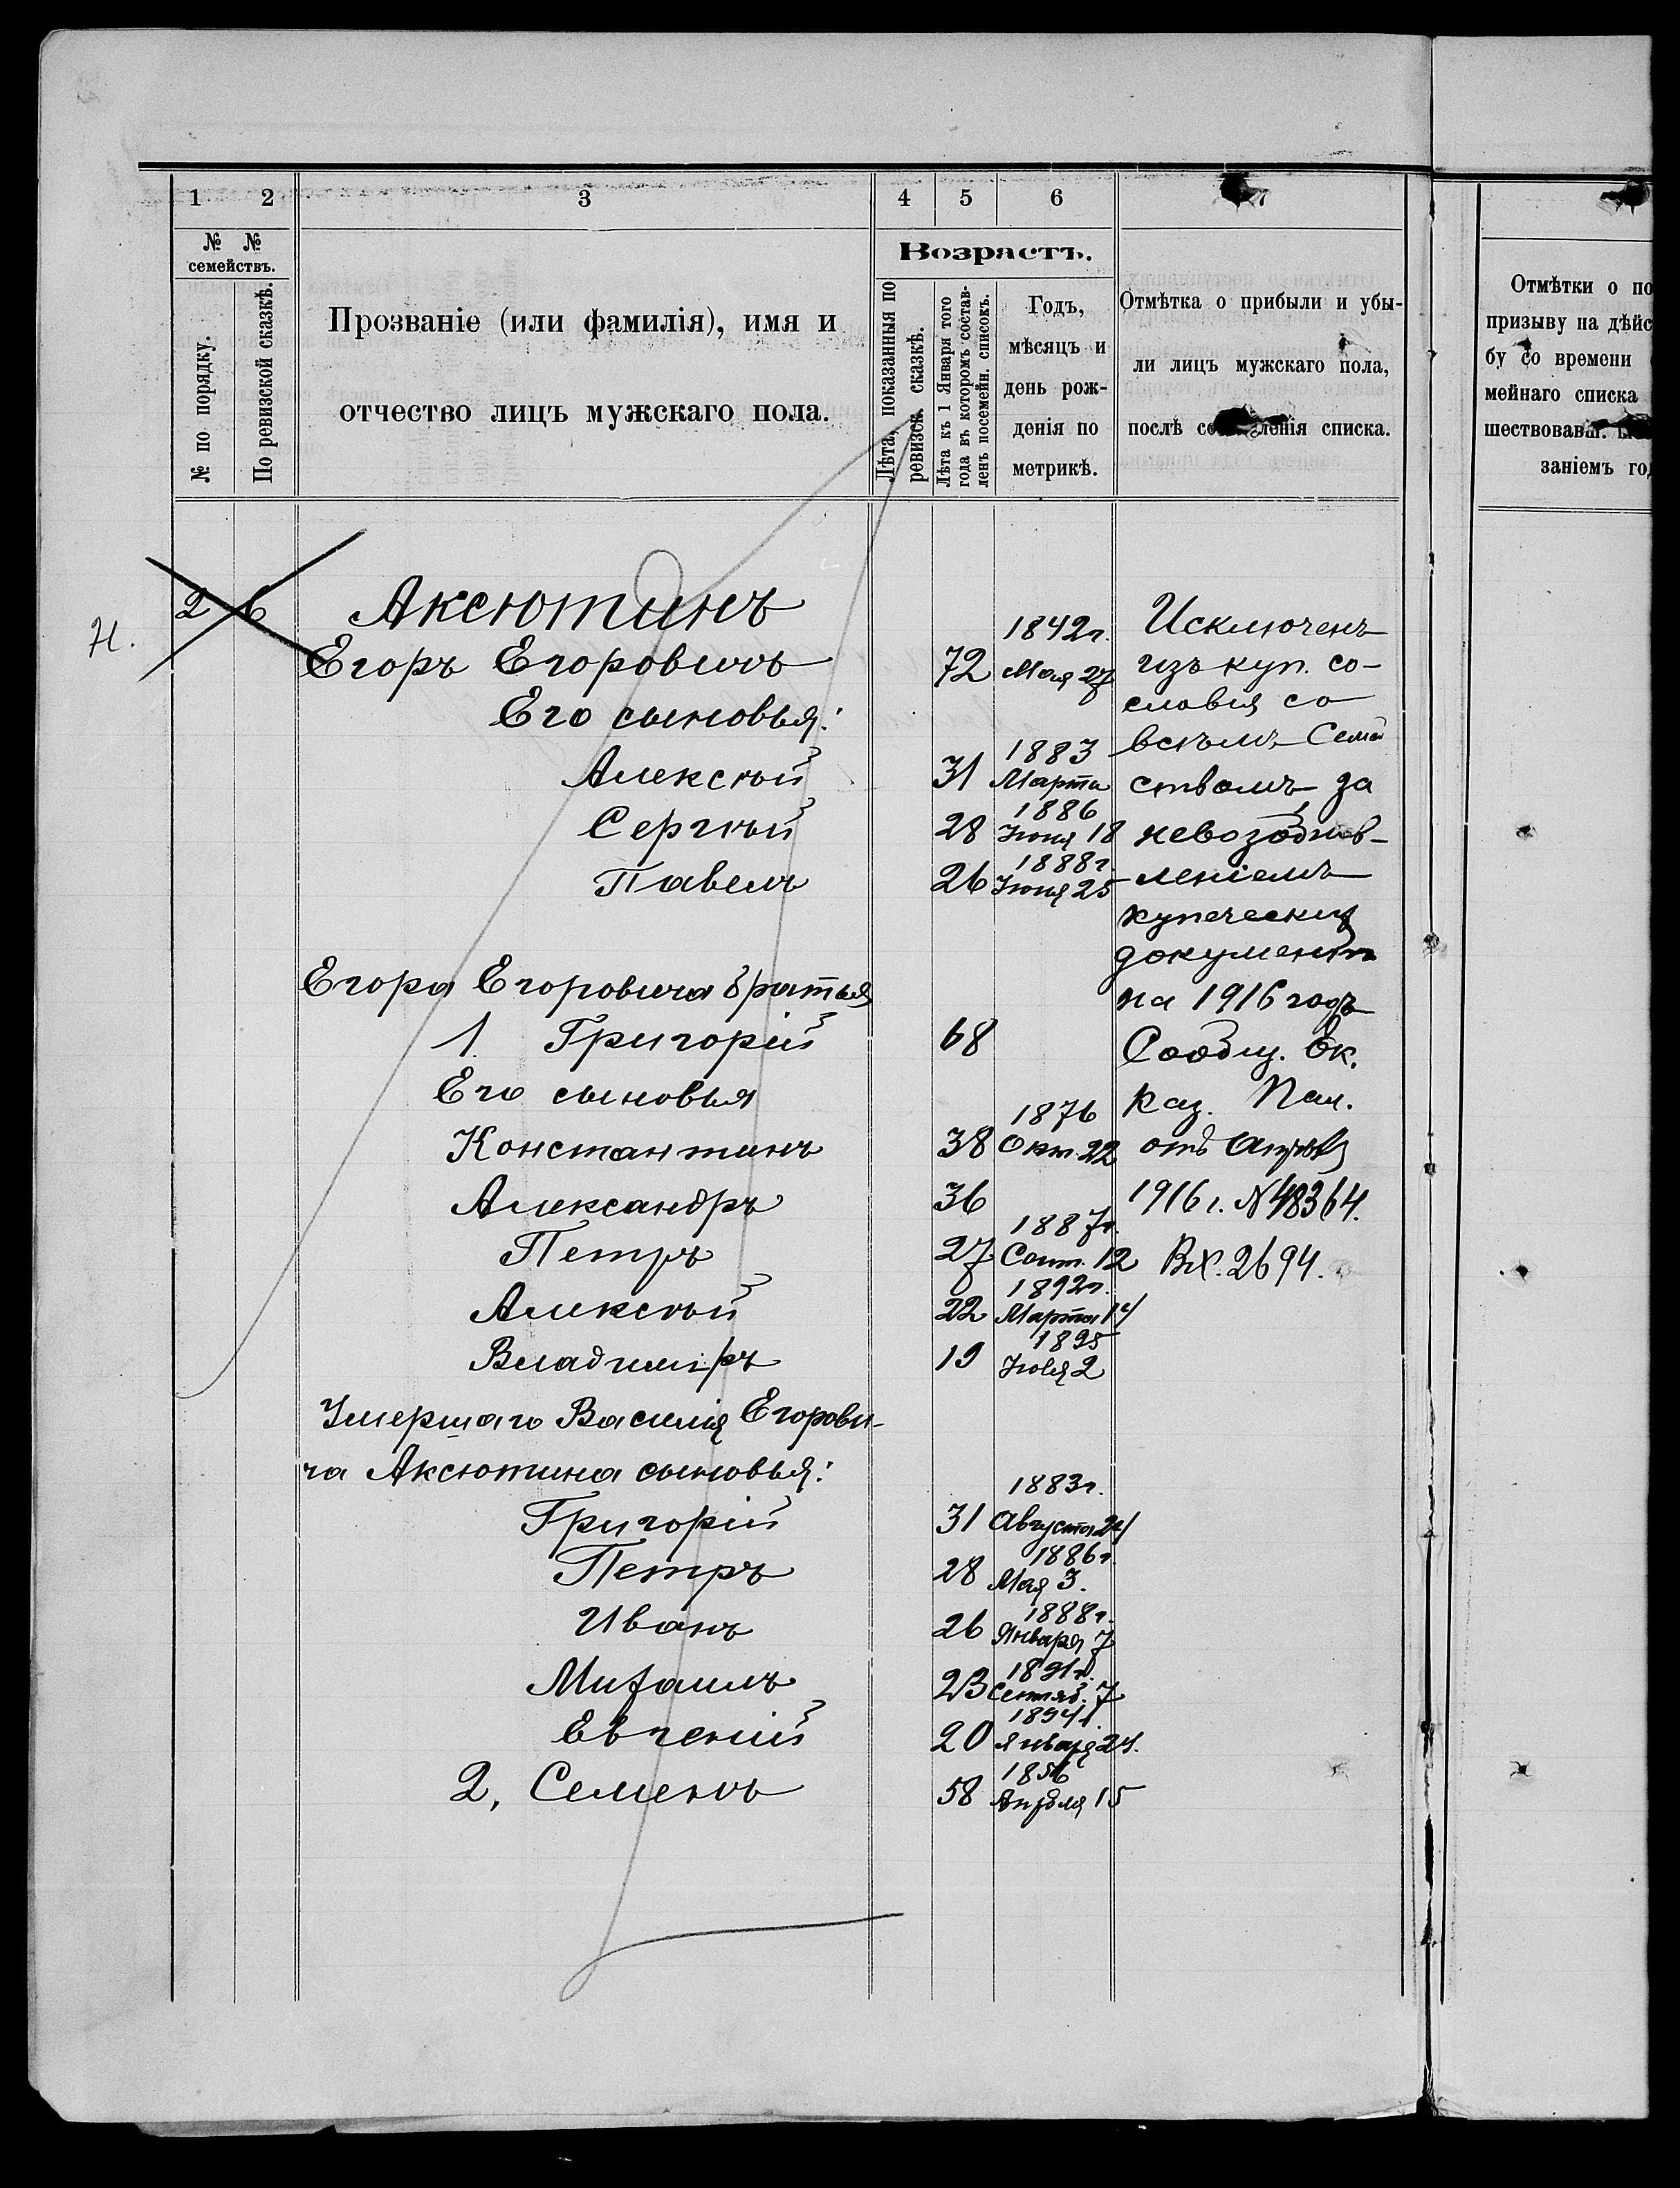 1 2 3 4 5 6 7
№ № семействъ.
№ по порядку.
По ревизской сказкѣ.
Прозваніе (или фамилія), имя и
отчество лицъ мужскаго пола.
Возрастъ.
Лѣта, показанныя по
ревизск. сказкѣ.
Лѣта къ 1 Января того
года въ которомъ состав-
ленъ посемейн. списокъ.
Годъ,
мѣсяцъ и
день рож-
денія по
метрикѣ.
Отмѣтка о прибыли и убы-
ли лицъ мужскаго пола,
послѣ составленія списка.
Отмѣтки о по
призыву на дѣйс
бу со времени
мейнаго списка
шествовавш.
заніемъ го
Н.
2 6 Аксютинъ
Егоръ Егоровичъ 72 1842г. Мая 27
Его сыновья:
Алексѣй 31 1883 Марта
Сергѣй 28 1886 Іюня 18
Павелъ 26 1888г. Іюня 25
Егора Егоровича братья
1. Григорій 68
Его сыновья
Константинъ 38 1876 Окт. 22
Александръ 36
Петръ 27 1887г. Сент. 12
Алексѣй 22 1892г. Марта 14
Владиміръ 19 1895 Іюля 2
Умершаго Василія Егорови-
ча Аксютина сыновья:
Григорій 31 1883г. Августа 24
Петръ 28 1886г. Мая 3.
Иванъ 26 1888г. Января 7
Михаилъ 23 1891г. Сентяб. 7
Евгеній 20 1894г. Января 24.
2, Семенъ 58 1856 Апрѣля 15
Исключенъ
изъ куп. со-
словія со
всѣмъ Семей
ствомъ за
невозобнов-
леніемъ
купеческих
документ
на 1916 годъ
Сообщ. Ек.
Каз. Пал.
отъ
1916 г. № 48364.
Вх. 2694.